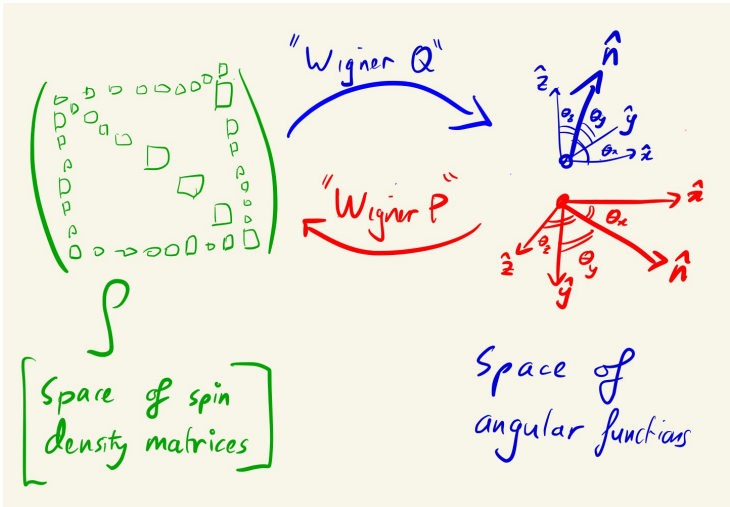 "Wigner Q"
n̂
ẑ
θz
θy
ŷ
θx
x̂
"Wigner P"
x̂
θx
θz
θy
ẑ
ŷ
n̂
ρ
[Space of spin
density matrices]
Space of
angular functions